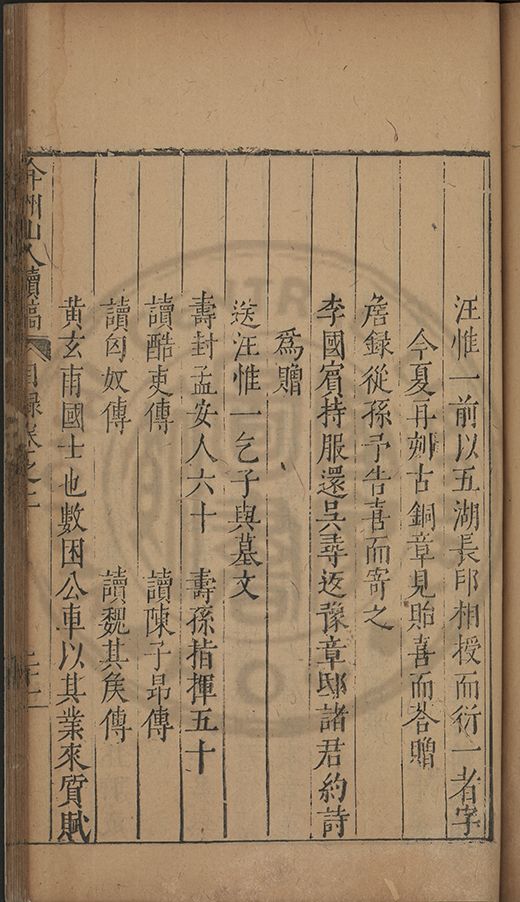 汪惟一前以五湖長印相授而衍一者字
今夏再刻古銅章見貽喜而荅贈
詹録從孫予告喜而寄之
李國賓持服還吳尋返豫章邸諸君約詩
爲贈
送汪惟一乞子與墓文
壽封孟安人六十　壽孫指揮五十
讀酷吏傳　讀陳子昻傳
讀匈奴傳　讀魏其矦傳
黃玄甫國士也數困公車以其業來質賦
弇州山人續稿　目録卷之二